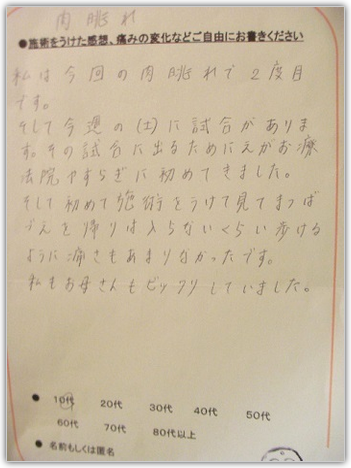 肉眺れ
●施術をうけた感想、痛みの変化などご自由にお書きください
私は今回の肉眺れで2度目
です。
そして今週の(土)に試合がありま
す。その試合に出るためにえがお療
法院やすらぎに初めてきました。
そして初めて施術をうけて見てまつば
づえを帰りは入らないくらい歩ける
ように痛さもあまりなかったです。
私もお母さんもビックリしていました。
● 10代 20代 30代 40代 50代
60代 70代 80代以上
● 名前もしくは匿名